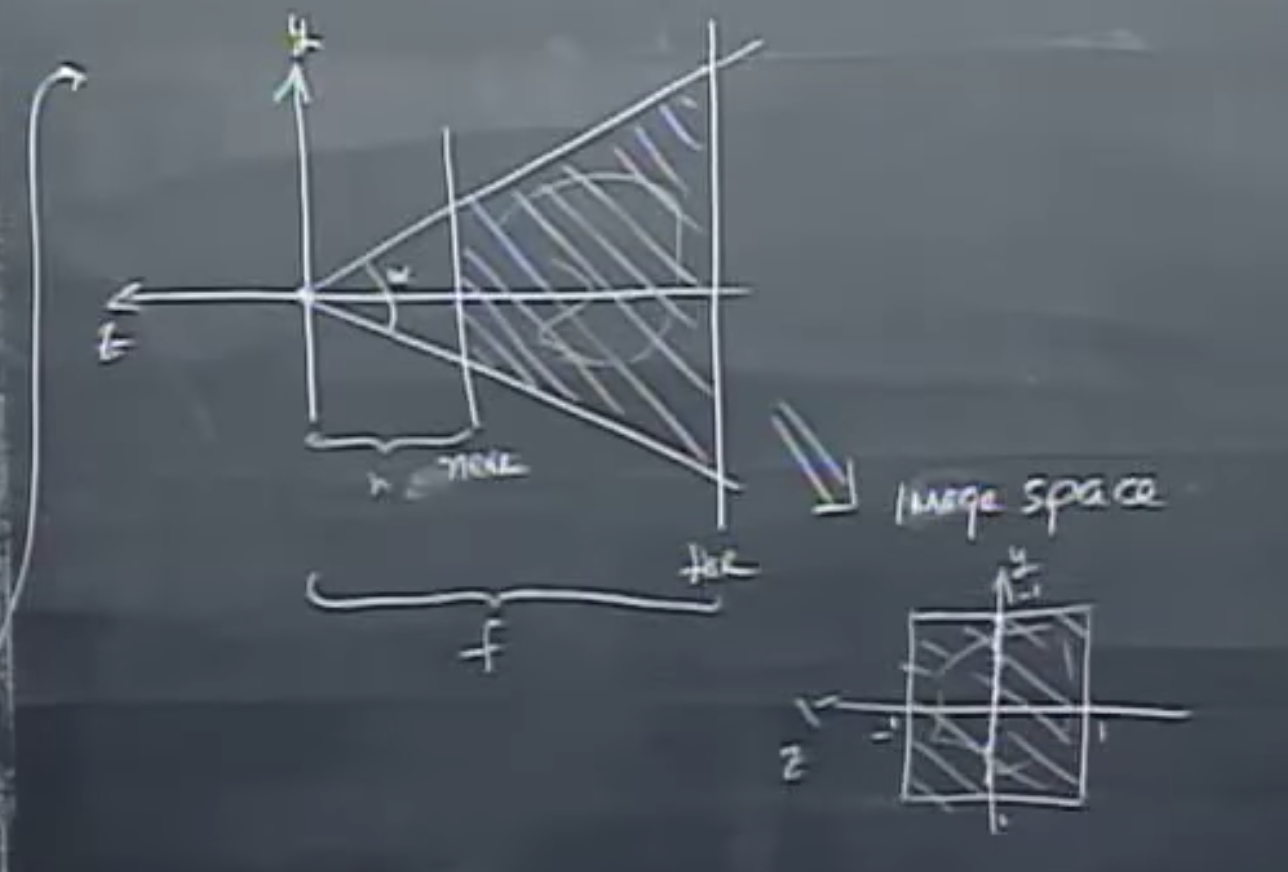 y
α
z
n
near
far
f
Image space
y
-1
-1
1
z
1